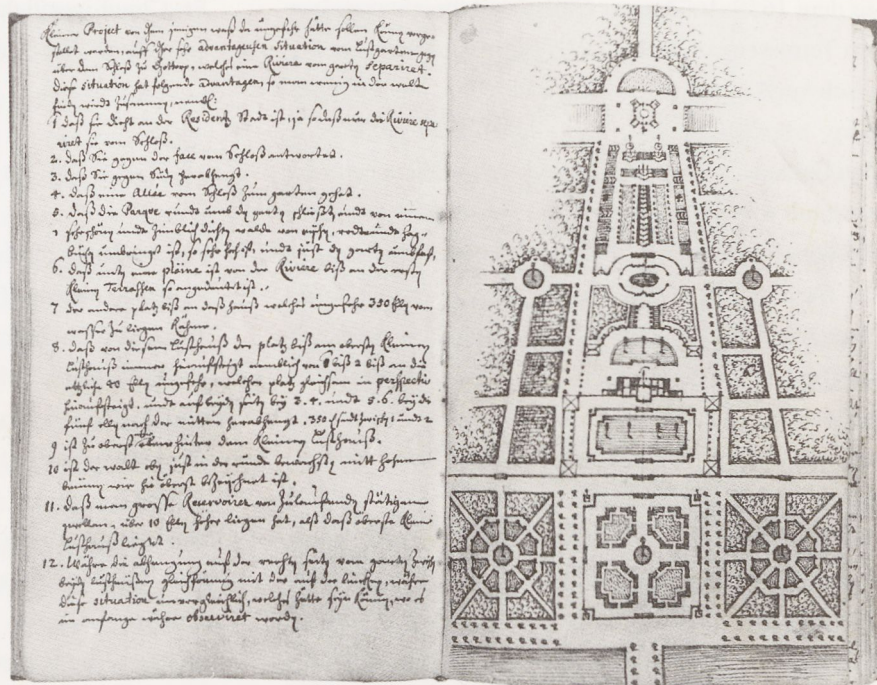 Kleines Project von dem jenigen waß da ungefehr hätte sollen können vorge-
stellt werden, auff der sehr advantageusen situation vom lustgarten gegen
über dem Schloß zu Gottorp, welches eine Riviere vom garten separiret.
diese situation hat folgende advantagen, so man wenig in der welt
finden wirdt zusammen, nembl:
1 daß sie dicht an der Residentz Stadt ist, ja so daß nur die Riviere sepa
riret sie vom Schloß.
2. daß Sie gegen der face vom Schloß antwortet.
3. daß Sie gegen Süden herabhengt.
4. daß eine Allée vom Schloß zum garten gehet.
5. daß die Parque runds umb den garten schliesset undt von einem
sehr schönen undt zimblich dichten walde von eichen, hag-
buchen umbringt ist, so sehr hoch ist, undt just den garten umbfast,
6. daß unten eine plaine ist, von der Riviere biß an der ersten
kleinen Terrassen so angedeutet ist.
7 der andere platz biß an daß hauß welches ungefehr 350 Ellen vom
wasser zu liegen kähme.
8. daß von diesem lusthauß der platz biß am obersten kleinen
lusthauß immer hinauffsteigt nemblich von 1 biß 2 biß an die
etzliche 40 Ellen ungefehr, welcher platz gleichsam in perspectiv
hinauffsteigt, undt auf beyden seiten bey 3.4. undt 5.6. beyde
funf ellen nach der mitten herabhengt. 350 (undt zwischen 1 undt 2
9 ist zu oberst hinter dem kleinen lusthauß.
10 ist der walt oben just in der runde bewachsen mitt hohen
bäumen wie hie oberst bezeichnet ist.
11. daß man grosse Reservoirer von zulauffenden stätigen
quellen, über 10 Ellen höher liegen hat, alß daß oberste kleine
lusthauß lieget.
12. Währe die abhengung auf der rechten seite vom garten zwischen
beyden lusthäusern gleichförmig mit der auf der lincken, währe
diese situation unvergleichlich, welches hätte seyn können, wo es
im anfange währe observiret worden.